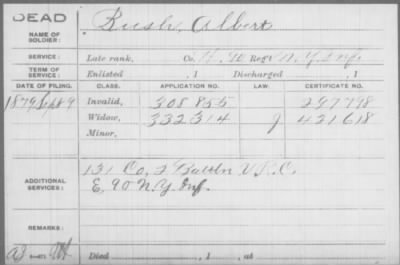 DEAD
NAME OF SOLDIER: Bush, Albert
SERVICE: Late rank, Co. H, 90 Reg't N.Y. Inf.
TERM OF SERVICE: Enlisted , 1 Discharged , 1
DATE OF FILING. CLASS. APPLICATION NO. LAW. CERTIFICATE NO.
1879 Sept 9 Invalid, 308855 297798
Widow, 332314 J 421618
Minor,
ADDITIONAL SERVICES: 131 Co, 2 Battln V.R.C.
E, 90 N.Y. Inf.
REMARKS:
Died , 1 , at